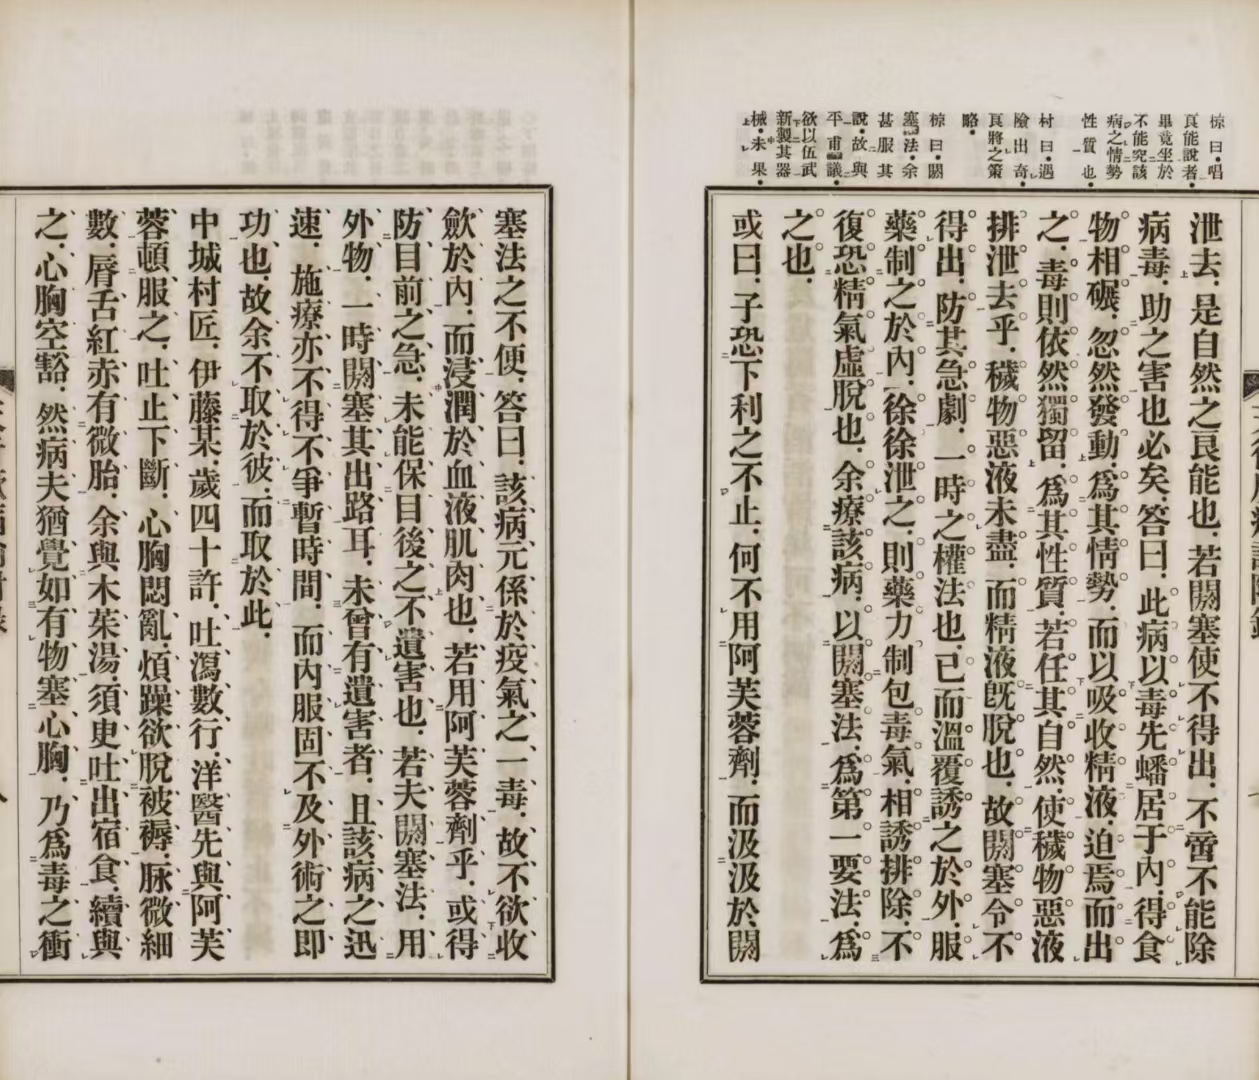 椋曰唱
眞能說者
畢竟坐於
不能究該
病之情勢
性質也
村曰遇
險出奇
良將之策
略
椋曰閼
塞法余
甚服其
說故與
平甫議
欲以伍武
新製其器
械未果
泄去是自然之良能也若閼塞使不得出不啻不能除
病毒助之害也必矣答曰此病以毒先蟠居于內得食
物相碾忽然發動爲其情勢而以吸收精液迫焉而出
之毒則依然獨留爲其性質若任其自然使穢物惡液
排泄去乎穢物惡液未盡而精液旣脫也故閼塞令不
得出防其急劇一時之權法也已而溫覆誘之於外服
藥制之於內徐徐泄之則藥力制包毒氣相誘排除不
復恐精氣虛脫也余療該病以閼塞法爲第一要法爲
之也
或曰子恐下利之不止何不用阿芙蓉劑而汲汲於閼
塞法之不便答曰該病元係於疫氣之一毒故不欲收
歛於內而浸潤於血液肌肉也若用阿芙蓉劑乎或得
防目前之急未能保目後之不遺害也若夫閼塞法用
外物一時閼塞其出路耳未曾有遺害者且該病之迅
速施療亦不得不爭暫時間而內服固不及外術之即
功也故余不取於彼而取於此
中城村匠伊藤某歲四十許吐瀉數行洋醫先與阿芙
蓉頓服之吐止下斷心胸悶亂煩躁欲脫被褥脉微細
數脣舌紅赤有微胎余與木茱湯須臾吐出宿食續與
之心胸空豁然病夫猶覺如有物塞心胸乃爲毒之衝